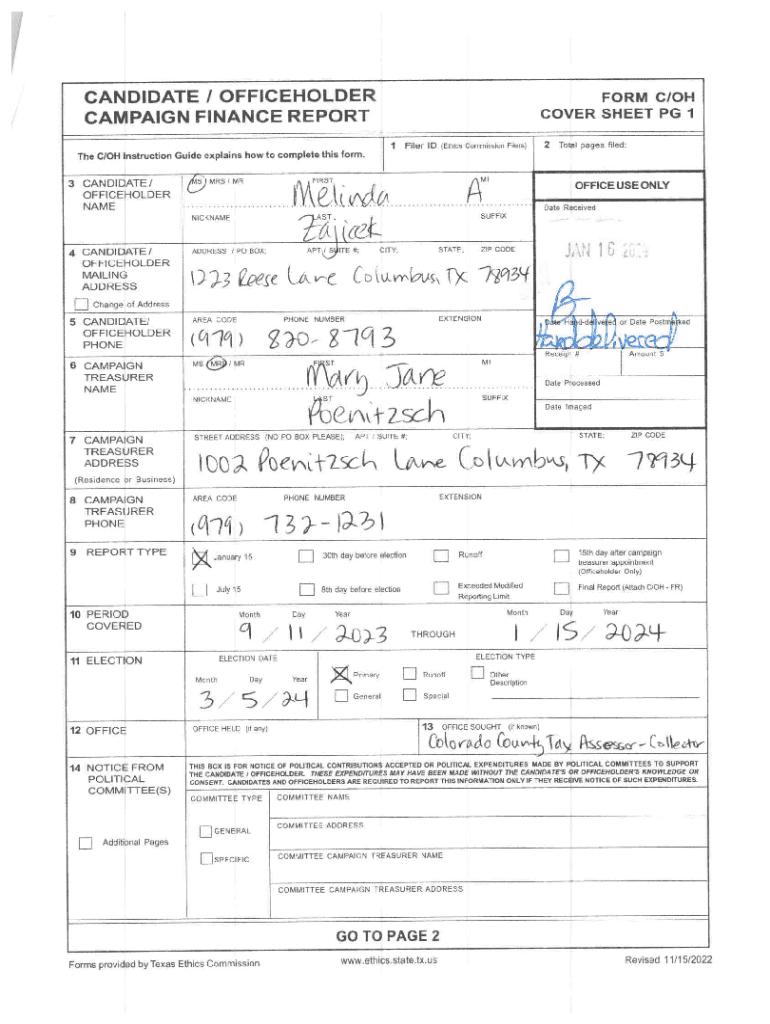 CANDIDATE / OFFICEHOLDER
CAMPAIGN FINANCE REPORT
FORM C/OH
COVER SHEET PG 1
The C/OH Instruction Guide explains how to complete this form.
1 Filer ID (Ethics Commission Filers)
2 Total pages filed:
3 CANDIDATE / OFFICEHOLDER NAME
MS / MRS / MR FIRST MI
Melinda A
NICKNAME LAST SUFFIX
Zajicek
OFFICE USE ONLY
Date Received
JAN 16 2024
4 CANDIDATE / OFFICEHOLDER MAILING ADDRESS
ADDRESS / PO BOX; APT / SUITE #; CITY; STATE; ZIP CODE
1223 Reese Lane Columbus, TX 78934
Change of Address
Date Hand-delivered or Date Postmarked
Handdelivered
5 CANDIDATE/ OFFICEHOLDER PHONE
AREA CODE PHONE NUMBER EXTENSION
(979) 820-8793
Receipt # Amount $
6 CAMPAIGN TREASURER NAME
MS / MRS / MR FIRST MI
Mary Jane
NICKNAME LAST SUFFIX
Poenitzsch
Date Processed
Date Imaged
7 CAMPAIGN TREASURER ADDRESS
(Residence or Business)
STREET ADDRESS (NO PO BOX PLEASE); APT / SUITE #; CITY; STATE; ZIP CODE
1002 Poenitzsch Lane Columbus, TX 78934
8 CAMPAIGN TREASURER PHONE
AREA CODE PHONE NUMBER EXTENSION
(979) 732-1231
9 REPORT TYPE
January 15 30th day before election Runoff 15th day after campaign treasurer appointment (Officeholder Only)
July 15 8th day before election Exceeded Modified Reporting Limit Final Report (Attach C/OH - FR)
10 PERIOD COVERED
Month Day Year Month Day Year
9 / 11 / 2023 THROUGH 1 / 15 / 2024
11 ELECTION
ELECTION DATE ELECTION TYPE
Month Day Year
3 / 5 / 24
Primary Runoff Other Description
General Special
12 OFFICE
OFFICE HELD (if any)
13 OFFICE SOUGHT (if known)
Colorado County Tax Assessor-Collector
14 NOTICE FROM POLITICAL COMMITTEE(S)
THIS BOX IS FOR NOTICE OF POLITICAL CONTRIBUTIONS ACCEPTED OR POLITICAL EXPENDITURES MADE BY POLITICAL COMMITTEES TO SUPPORT
THE CANDIDATE / OFFICEHOLDER. THESE EXPENDITURES MAY HAVE BEEN MADE WITHOUT THE CANDIDATE'S OR OFFICEHOLDER'S KNOWLEDGE OR
CONSENT. CANDIDATES AND OFFICEHOLDERS ARE REQUIRED TO REPORT THIS INFORMATION ONLY IF THEY RECEIVE NOTICE OF SUCH EXPENDITURES.
Additional Pages
COMMITTEE TYPE
GENERAL
SPECIFIC
COMMITTEE NAME
COMMITTEE ADDRESS
COMMITTEE CAMPAIGN TREASURER NAME
COMMITTEE CAMPAIGN TREASURER ADDRESS
GO TO PAGE 2
Forms provided by Texas Ethics Commission
www.ethics.state.tx.us
Revised 11/15/2022